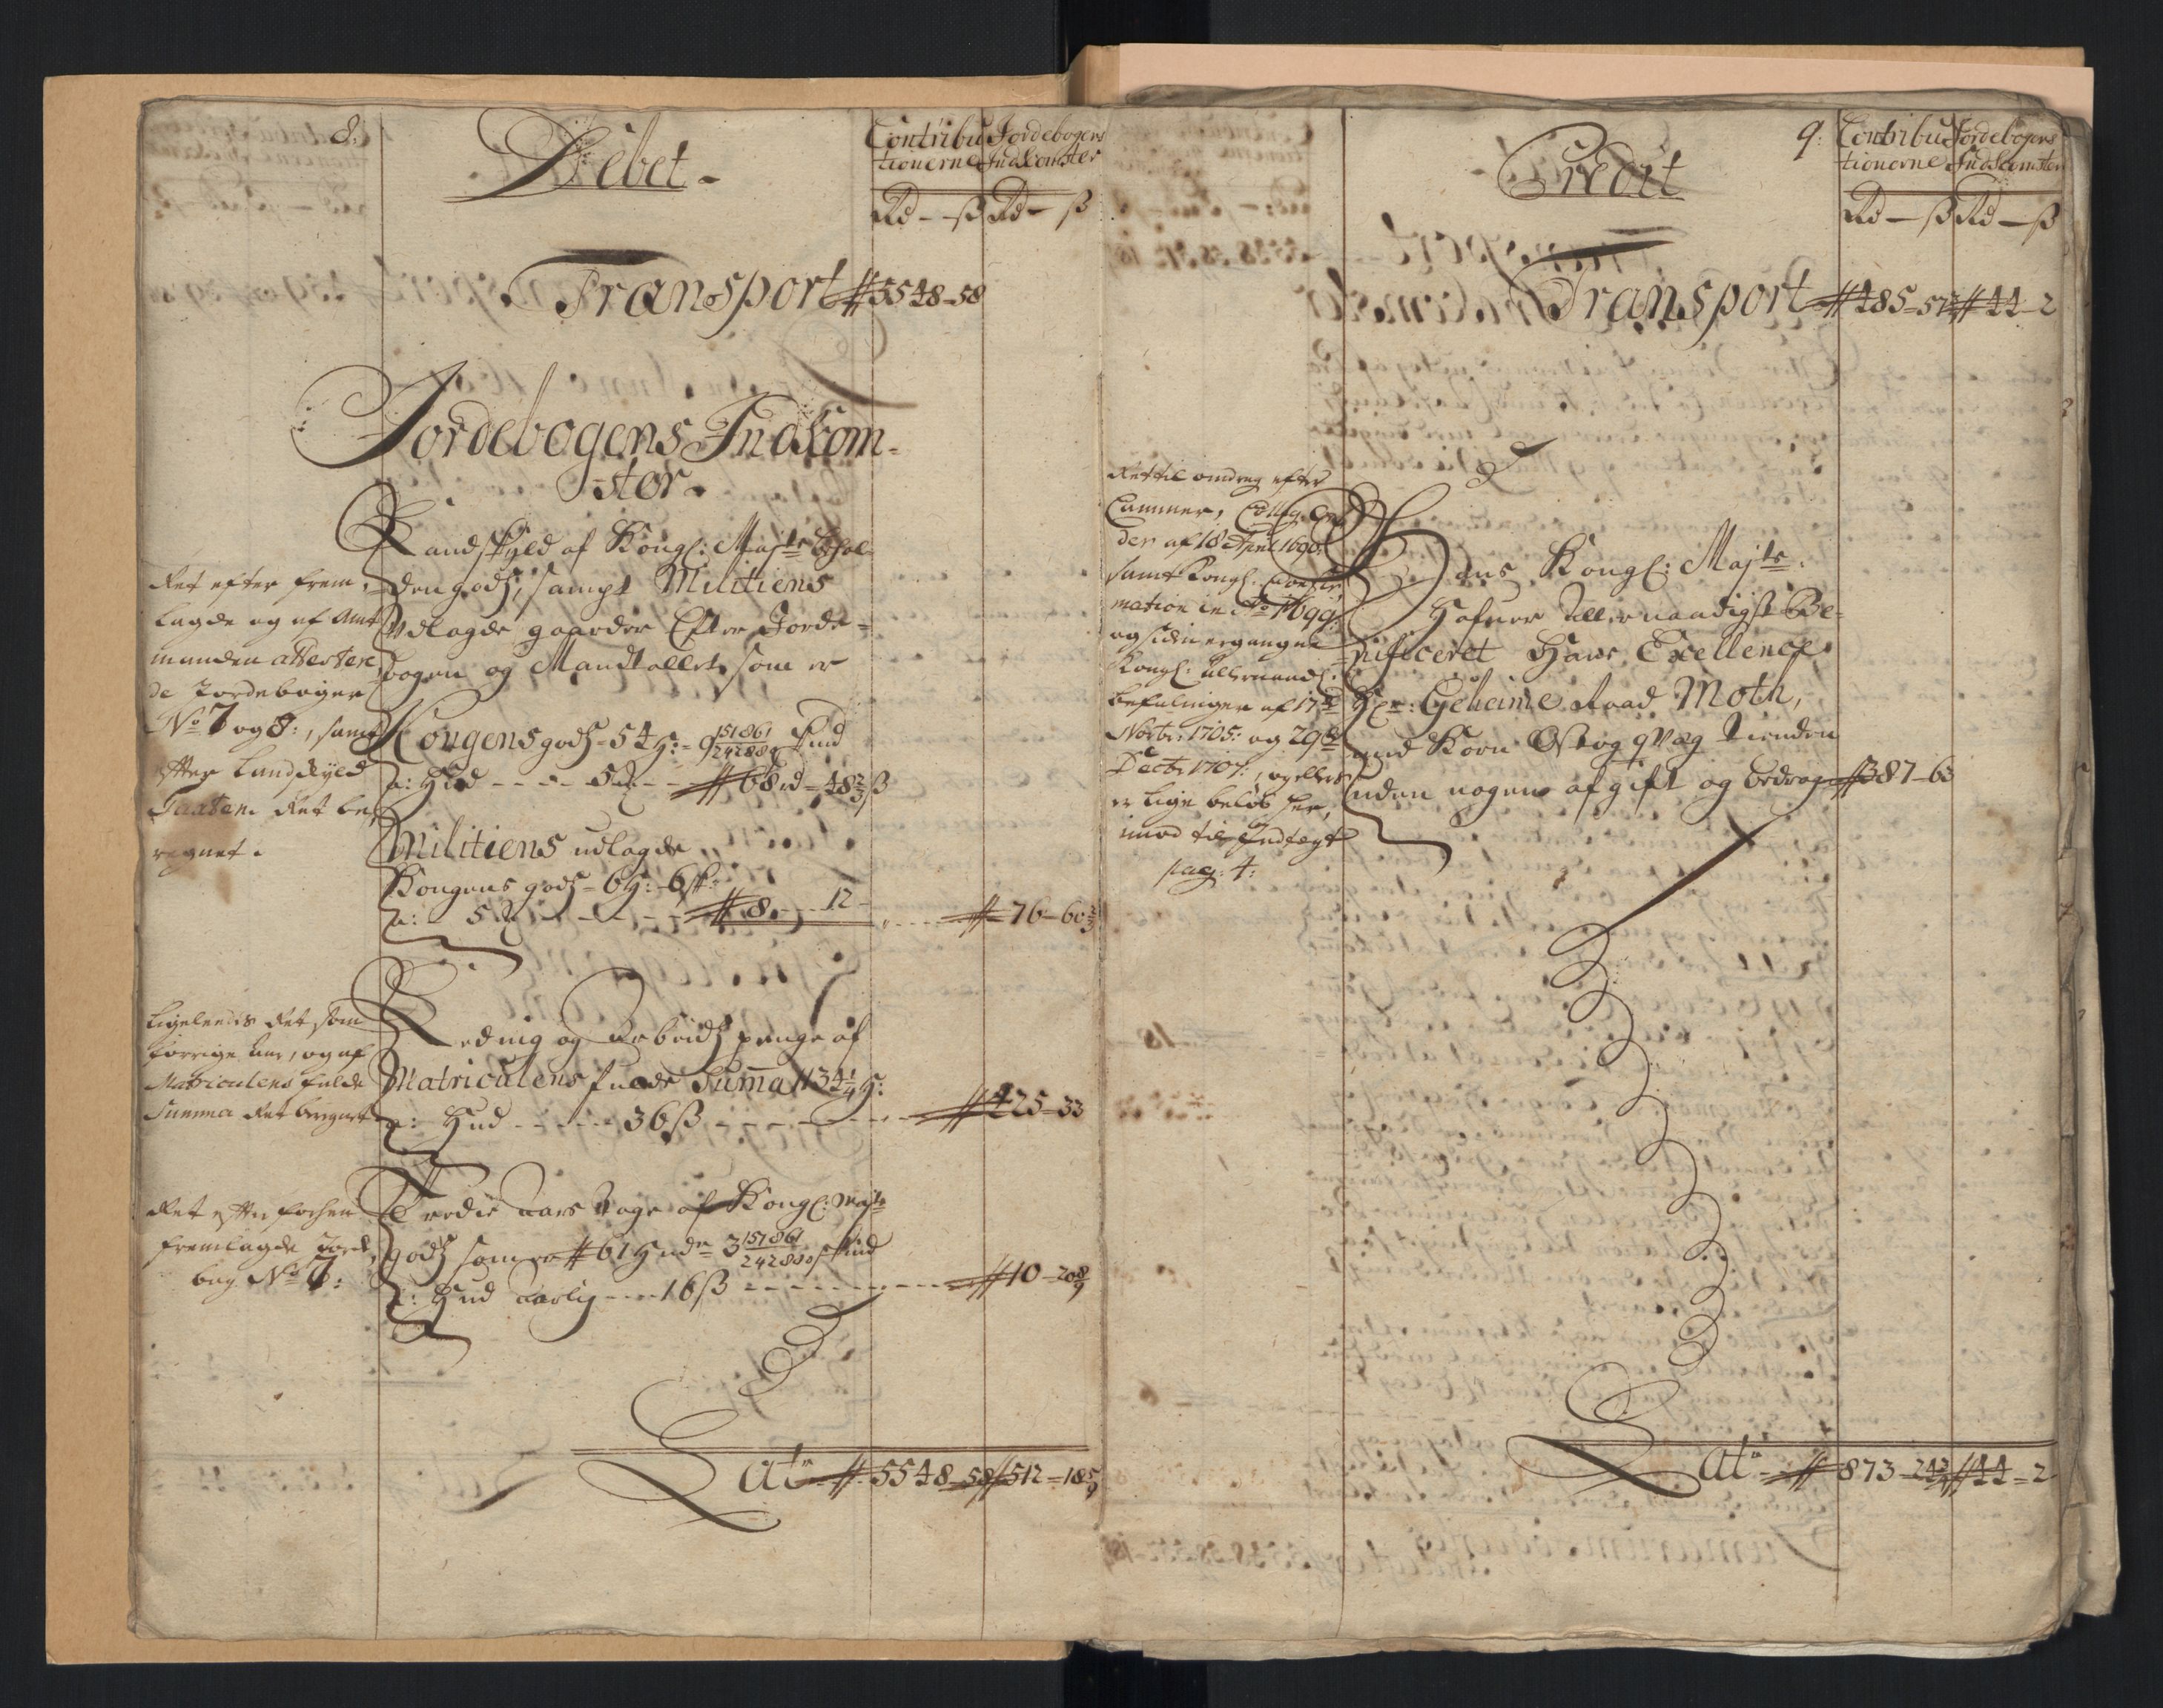 8.
Debet
Contribu Jordebogens
tionerne Indkomster
Rd — ß Rd — ß
Transport # 5548 - 58
Jordebogens Indkom-
ster.
Landskyld af Kongl: Majts Behol-
den godz, sampt Militiens
Udlagde gaarder Efter Jorde-
bogen og Mandtallet som er
Kongens godz - 54 H: - 9 151861/242880 skind
a: Hud - - - - 5 - - # 68 rd - 48 2/3 ß
Militiens udlagde
Kongens godz - 6 H: - 6 sk:
a: 5 - - - - # 8 - - 12 - - - - # 76 - 60 2/3
Ret efter frem-
lagde og af Amt
manden attestere-
de Jordebøger
No 7 og 8:, samt
efter Landskyld
Taxten Ret be-
regnet.
Leding og Arbeidz penge af
Matriculens fulde Suma 1134 1/4 H:
a: Hud - - - - 36 ß - - - - # 425 - 33
Ligeledis Ret som
forrige aar, og af
Matriculens fulde
Summa Ret beregnet
Tredie aars tage af Kongl: Majts
godz som er # 61 Huder 3 151861/242880 skind
a: Hud aarlig - - - 16 ß - - - - # 10 - 20 8/9
Ret efter forhen
fremlagde Jorde
bog No 7:
Lats # 5548 - 58 # 512 - 18 5/9
9:
Credit
Contribu Jordebogens
tionerne Indkomster
Rd — ß Rd — ß
Transport # 485 - 57 # 44 - 2
Ret til omdrag efter
Cammer, Colleg. Or
der af 18 April 1690:
samt Kongl. Confir
mation in Ao 1699.
og siden ergangne
Kongl. allernaad:
befalinger af 17de
Novbr: 1705: og 29de
Decbr 1707:, og ellers
er lige beløb her,
imod til Indtegt
pag: 4:
Hans Kongl: Majts:
Hafver Allernaadigst Be-
nificeret Hans Excellence
Hr: Geheime Raad Moth,
med Korn Ost og qvæg tienden
uden nogen afgift og bedrag # 387 - 63
Lats # 873 - 24 # 44 - 2